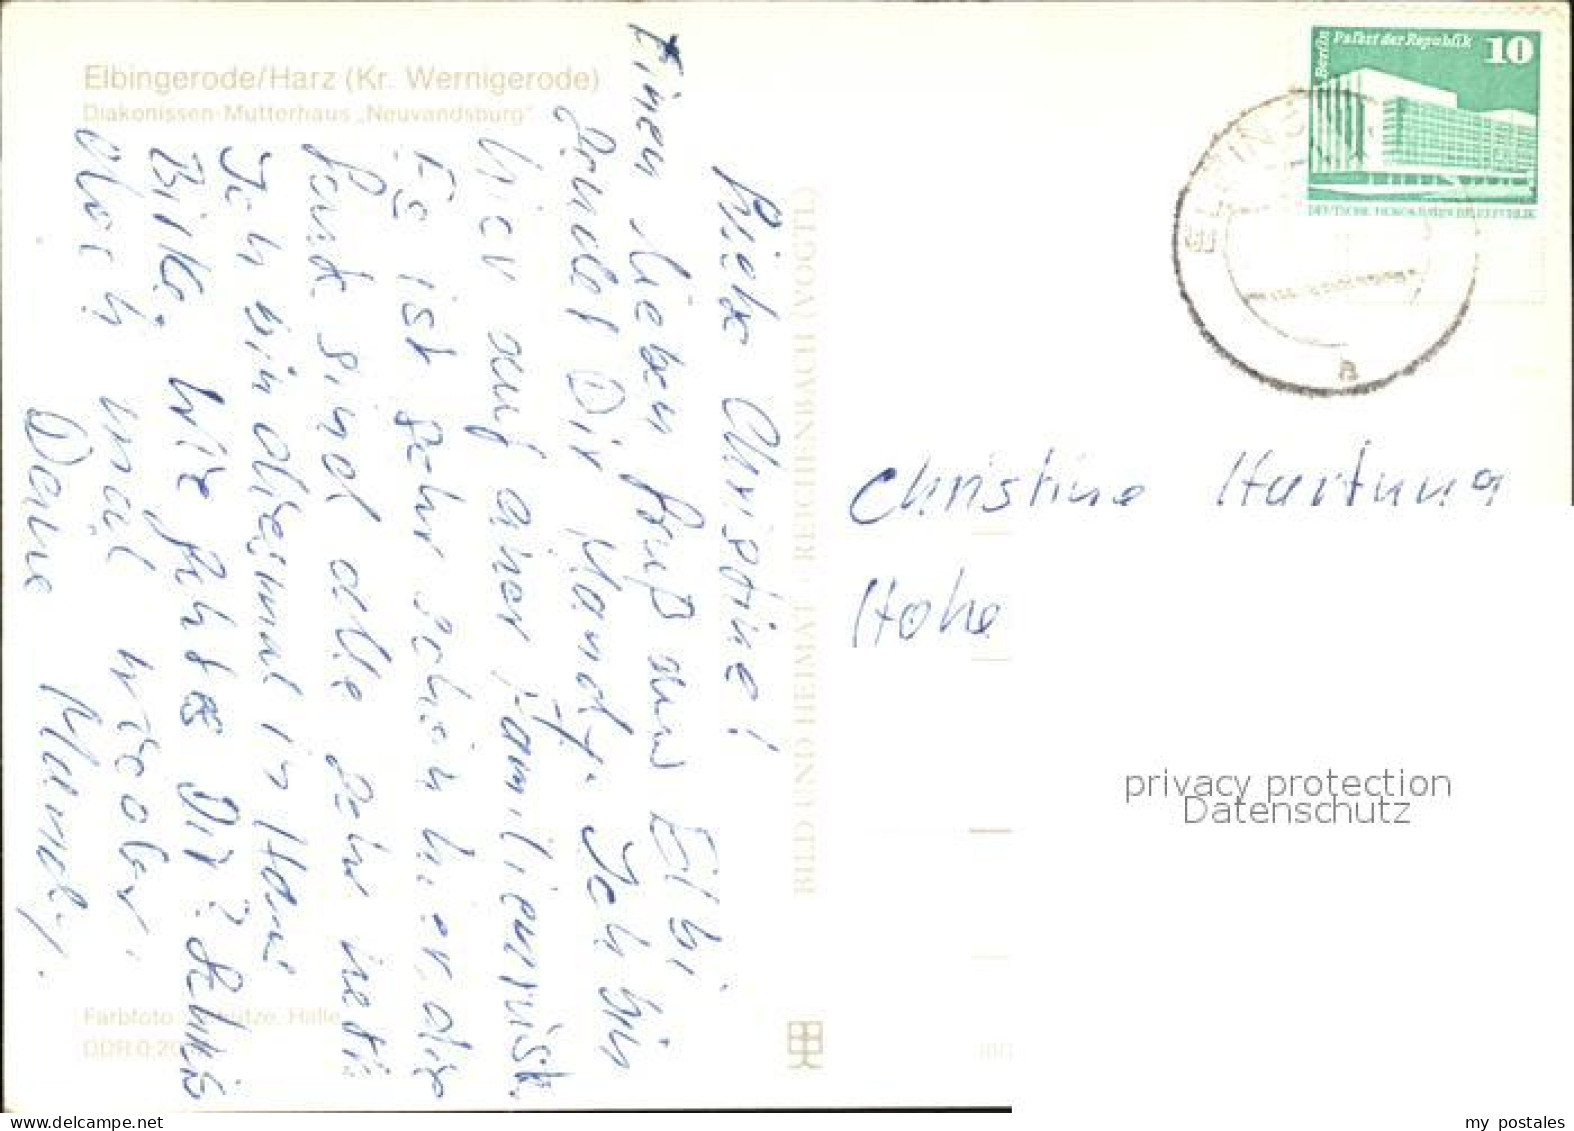 Elbingerode/Harz (Kr. Wernigerode)
Diakonissen-Mutterhaus „Neuvandsburg"
Liebe Christine!
Einen lieben Gruß aus Elbi.
sendet Dir Mandy. Ich bin
hier auf einer
Es ist sehr schön hier, die
Leute sind alle sehr nett.
Ich bin diesmal in Haus
Wie geht es Dir? Schreib
doch mal wieder.
Deine Mandy.
Farbfoto: Halle
DDR 0,20
BILD UND HEIMAT · REICHENBACH (VOGTL)
Berlin Palast der Republik 10
DEUTSCHE DEMOKRATISCHE REPUBLIK
a
Christine Hartung
Hohe
privacy protection
Datenschutz
www.delcampe.net
my_postales